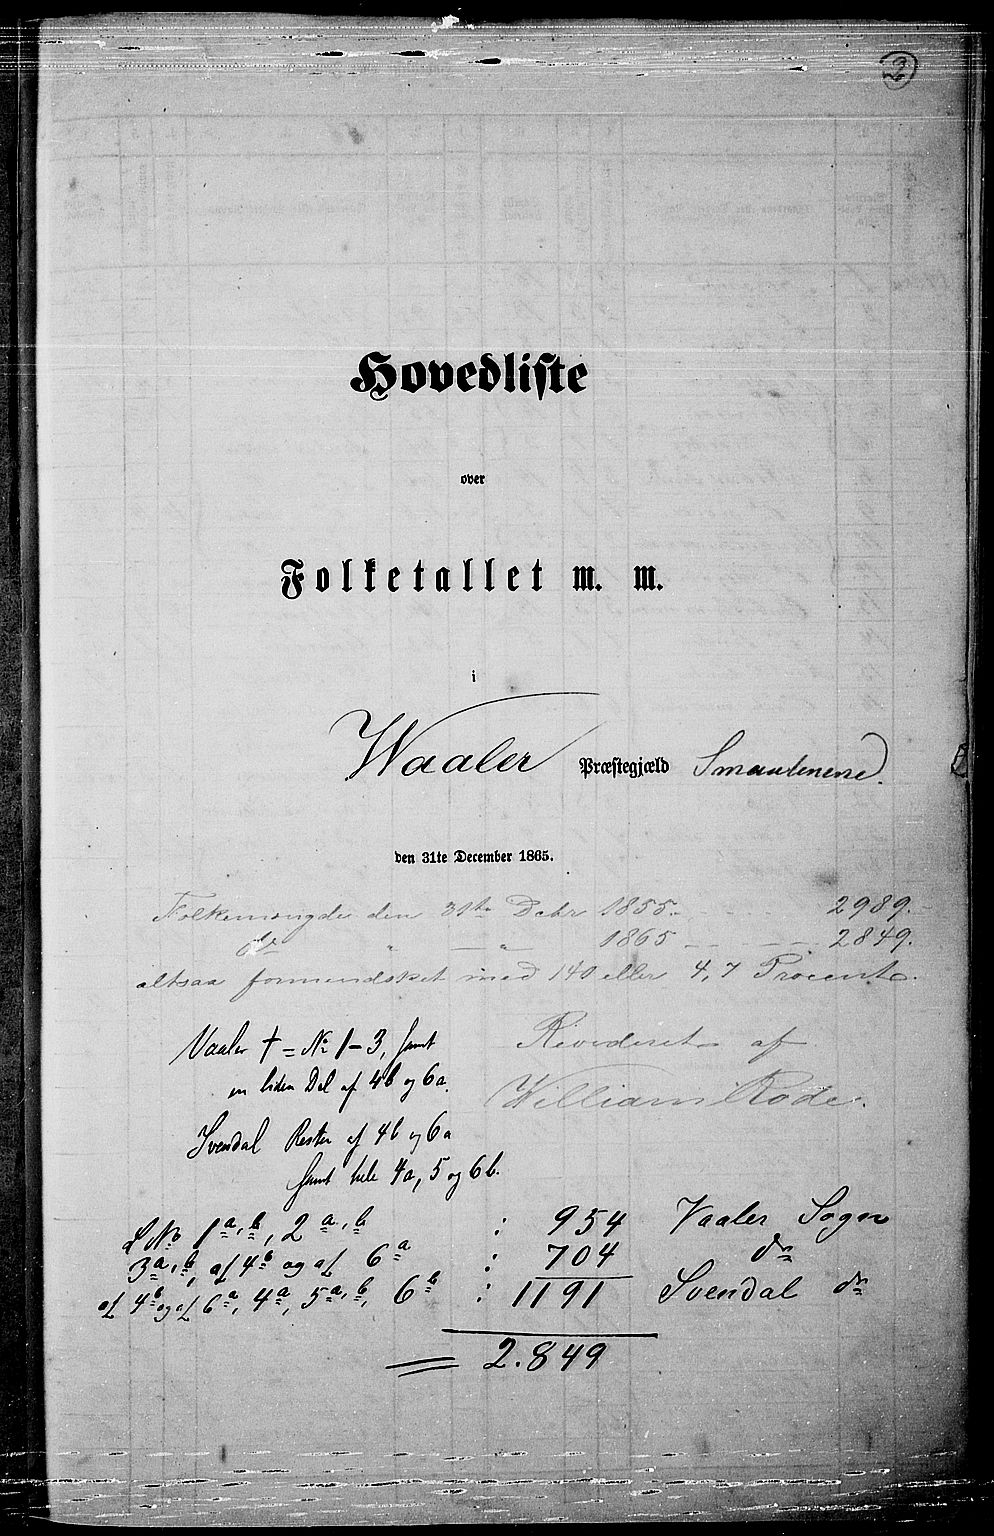 2
Hovedliste
over
Folketallet m. m.
i
Waaler Præstegjæld Smaalenene.
den 31te December 1865.
Folkemængde den 31te Decbr 1855. 2989.
do " — " 1865 — 2849.
altsaa formindsket med 140 eller 4,7 Procent.
Vaaler † = No 1–3, samt
en liden Del af 4b og 6a.
Svendal Resten af 4b og 6a
samt hele 4a, 5 og 6b.
L No 1a,b, 2a,b : 954 Vaaler Sogn
3a,b, af 4b og af 6a : 704 do
af 4b og af 6a, 4a, 5a,b, 6b : 1191 Svendal do
2.849
Revideret af
William Rode.